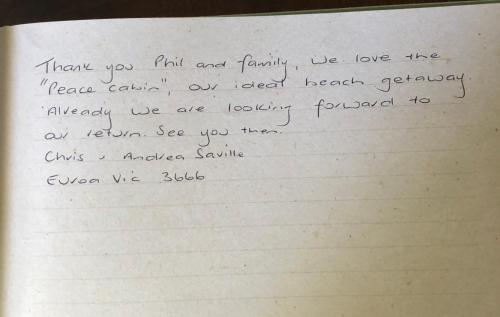 Thank you Phil and family, We love the
"Peace cabin", our ideal beach getaway.
Already we are looking forward to
our return. See you then.
Chris & Andrea Saville
Euroa Vic 3666